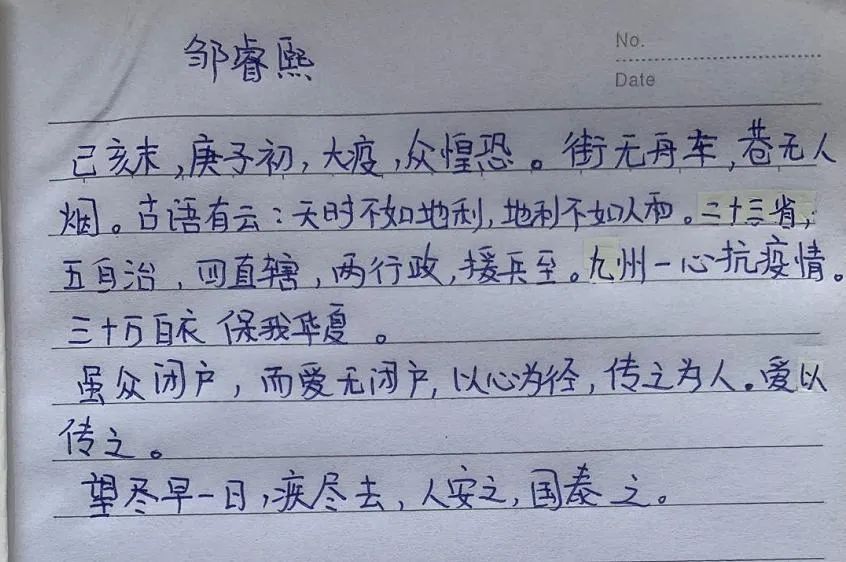 邹睿熙
No.
Date
己亥末,庚子初,大疫,众惶恐。街无舟车,巷无人
烟。古语有云:天时不如地利,地利不如人和。二十三省,
五自治,四直辖,两行政,援兵至。九州一心抗疫情。
三十万白衣 保我华夏。
虽众闭户,而爱无闭户,以心为径,传之为人。爱以
传之。
望尽早一日,疾尽去,人安之,国泰之。